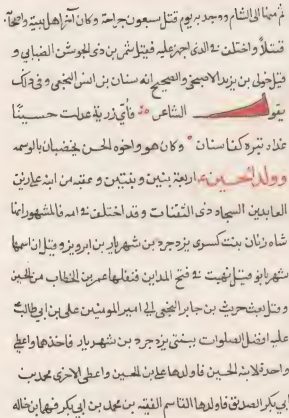 ثم منها الى الشام ووجد به يوم قتل سبعون جراحة وكان آخر اهل بيته واصحابه
قتلاً واختلف فى الذى اجهز عليه فقيل شمر بن ذى الجوشن الضبابى و
قيل خولى بن يزيد الاصبحى والصحيح انه سنان بن انس النخعى وفى ذلك
يقول الشاعر فأى رزية عدلت حسيناً
غداة تبيره كفا سنان وكان هو واخوه الحسن يخضبان بالوسمه
وولد الحسين اربعة بنين وبنتين وعقبه من ابنه على زين
العابدين السجاد ذى الثفنات وقد اختلف فى امه فالمشهور انها
شاه زنان بنت كسرى يزدجرد بن شهريار بن ابرويز وقيل ان اسمها
شهربانو قيل نهبت فى فتح المداين فنفلها عمر بن الخطاب من الحسين
وقيل بعث حريث بن جابر الجعفى الى امير المومنين على بن ابى طالب
عليه افضل الصلوات ببنتى يزدجرد بن شهريار فاخذهما واعطى
واحدة لابنه الحسين فاولدها على بن الحسين واعطى الاخرى محمد بن
ابى بكر الصديق فاولدها القاسم الفقيه بن محمد بن ابى بكر فهما ابنا خاله